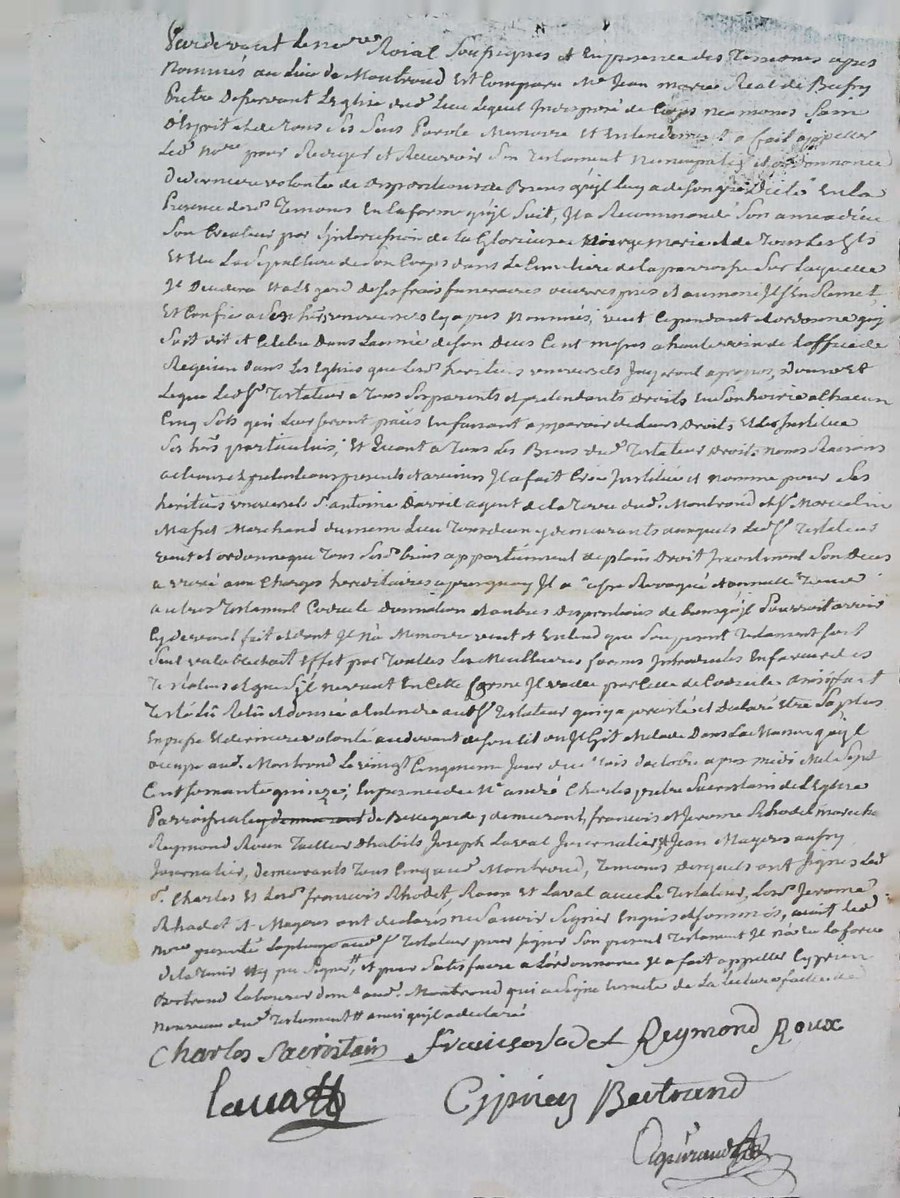 Pardevant le no.re Roial Soussignés et En presence des Temoins apres
Nommés au Lieu de Montroud Est Comparu M.e Jean marie Real de
Pretre Desservant L'Eglise dud. Lieu Lequel Indisposé de Corps neamoins Sain
d'Esprit et de tous Ses Sens Parole Memoire Et Entendement a fait appeller
Led. No.re pour Rediger et Recevoir Son Testament Nuncupatif et ordonnance
De derniere volonté de dispositions de Biens qu'jl Luy a de son gré Dicté En la
Presence desd. Temoins En la forme qu'jl Suit, Jl a Recommandé Son ame a dieu
Son Createur par L'intercession de la Glorieuse Vierge Marie et de Tous Les Sts
Et Elu La Sepulture de Son Corps dans Le Cimetiere de la parroisse Sur Laquelle
Jl Decedera Et a L'Egard de ses frais funeraires oeuvres pies et aumone Jl S'En Remet
Et Confie a Ses hers universels Cy apres Nommés, veut Cependant et ordonne qu'jl
Soit dit et Celebré Dans Lannée de son Deces Cent messes a haute voix de L'office de
Requiem Dans Les Eglises que Lesd. heritiers universels Jugeront a propos, Donne Et
Legue Led. Sr Testateur a Tous Ses parents et pretendants Droits En Son hoirie a Chacun
Cinq Sols qui Leur seront payés En faisant apparoir de Leurs Droits, Et Les Institue
Ses hers particuliers; Et Quant a Tous Les Biens dud. Testateur Droits noms Raisons
actions et pretentions presents et avenirs Jl a fait Crée Jnstitué et nommé pour Ses
heritiers universels Sr antoine Davril agent de la Terre dud. Montrond et Sr Marcelin
Mafret Marchand du meme Lieu Tous deux y demeurants auxquels Led. Sr Testateur
veut et ordonne que Tous Sesd. biens appartiennent de plain Droit Jncontinent Son Deces
arrivé aux Charges hereditaires Jl a Revoqué et annullé Tous
autres Testament Codicile donnation et autres dispositions de qu'jl Pourroit avoir
Cy devant fait et dont Jl n'a Memoire veut et Entend que Son present Testament Soit
Seul valable et ait Effet par Toutes Les Meilleures formes Introduites En faveur des
Testateurs et que S'jl ne vaut En Cette forme Jl vaille par Celle de Codicile ainsy fait
Testé Lû Relû et donné a Entendre aud. Sr Testateur qui y a persisté et Declaré Etre Sa plus
Expresse Et derniere volonté au devant de son lit ou Jl Git Malade Dans La Maison qu'jl
occupe aud. Montrond Le vingt Cinquieme Jour du mois d'octobre apres midi Mil Sept
Cent Soixante quinze; En presence de M.e andré Charles pretre Sacristain de L'Eglise
Parroissiale de Bellegarde y demeurant, francois et Jerome Rhodet marechx
Reymond Roux Tailleur d'habits Joseph Laval Journalier, et Jean Mayeres aussy
Journalier, demeurants Tous Cinq aud. Montrond, Temoins Desquels ont Signés Led.
Sr Charles Et Lesd. francois Rhodet, Roux Et Laval avec Le Testateur, Lesd. Jerome
Rhodet et Mayeres ont declarés ne Savoir Signer Enquis et Sommés, avoit Led.
No.re presenté La plume aud. Sr Testateur pour Signer Son present Testament Jl n'a Eu La force
de la Tenir et n'y pu Signer, et pour Satisfaire a L'ordonnance Jl a fait appeller Cyprien
Bertrand Laboureur dem.t aud. Montrond qui a Signé Ensuite de La lecture faitte de
Nouveau dud. Testament ainsi qu'jl a declaré
Charles Sacristain francois Rodet Reymond Roux
Laval Cyprien Bertrand